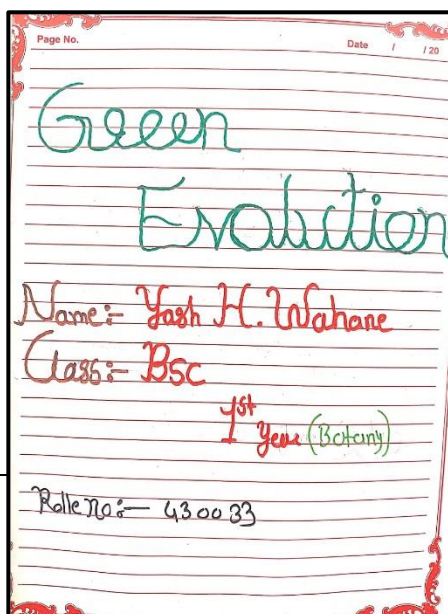 Page No.
Date / / 20
Green
Evolution
Name:- Yash H. Wahane
Class:- BSc
1st Year (Botany)
Rolle no:- 430033